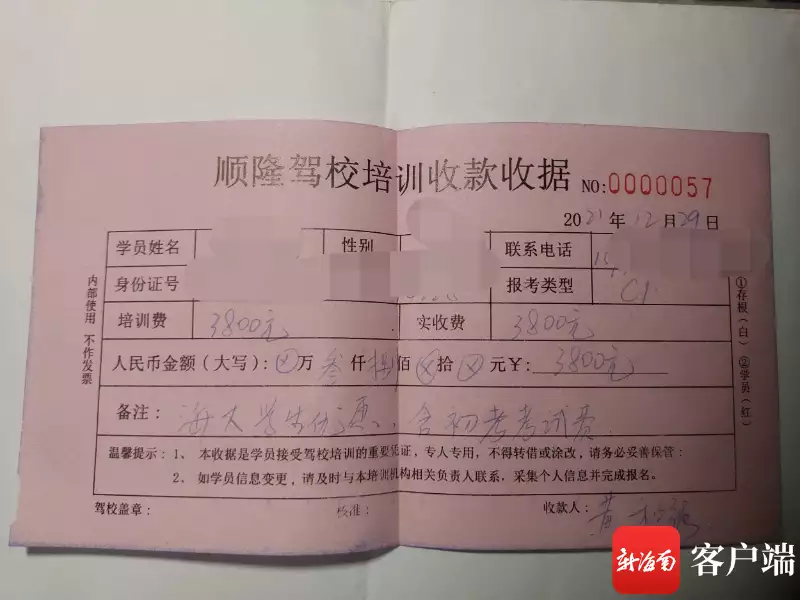 顺隆驾校培训收款收据 NO:0000057
2021年12月29日
学员姓名 性别 联系电话
身份证号 报考类型 C1
培训费 3800元 实收费 3800元
人民币金额（大写）：⊗万叁仟捌佰⊗拾⊗元¥：3800元
备注：海大学生优惠，含初考考试费
温馨提示：1、本收据是学员接受驾校培训的重要凭证，专人专用，不得转借或涂改，请务必妥善保管；
2、如学员信息变更，请及时与本培训机构相关负责人联系，采集个人信息并完成报名。
驾校盖章： 核准： 收款人：黄
内部使用 不作发票
①存根（白） ②学员（红）
新海南 客户端